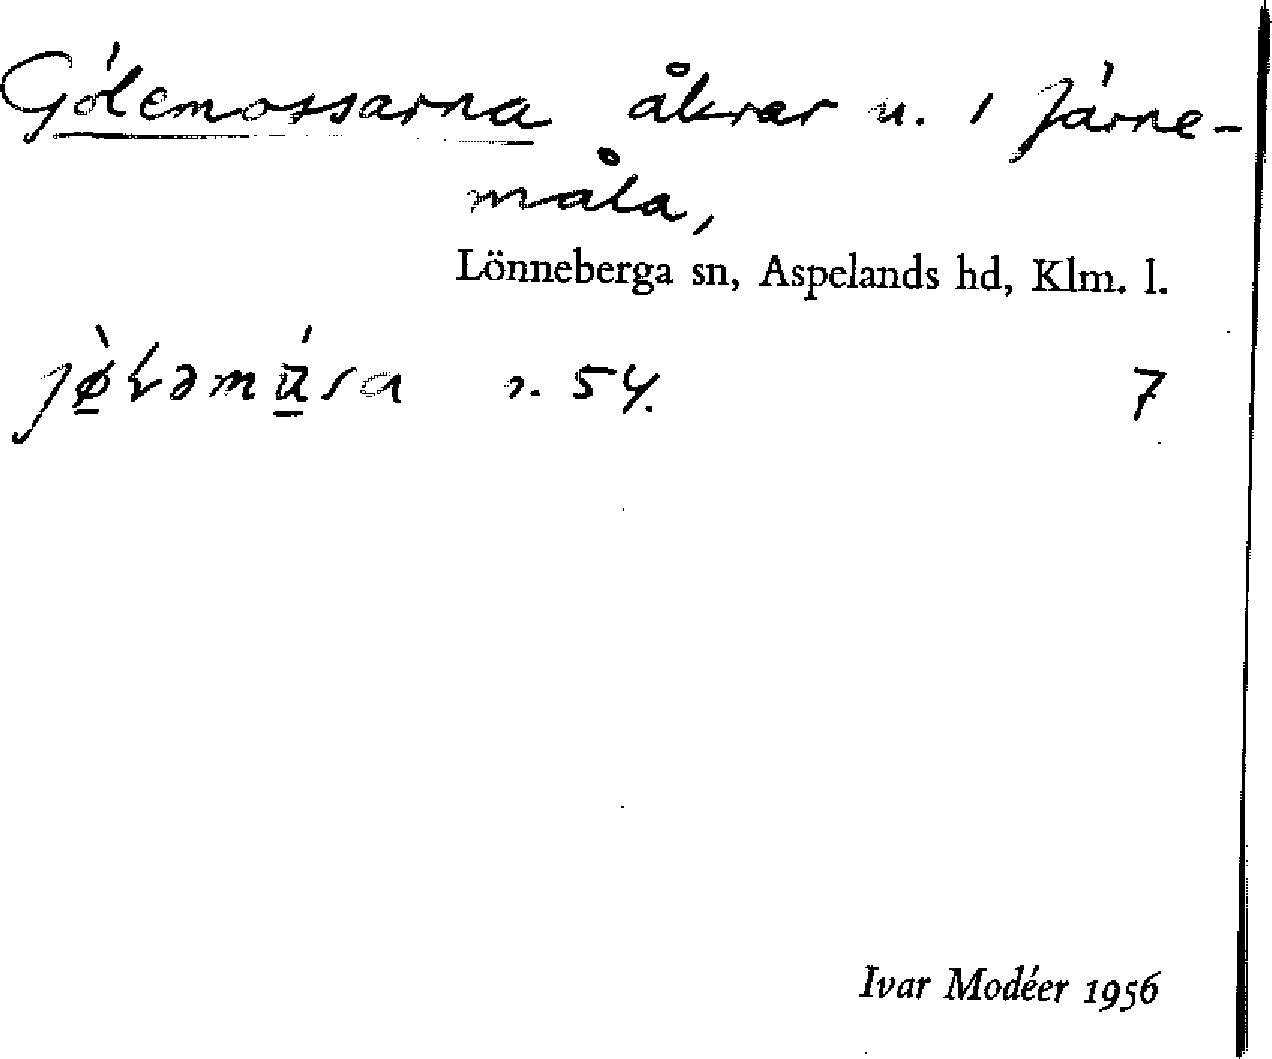 Gölemossarna åkrar u. 1 Järne-
måla,
Lönneberga sn, Aspelands hd, Klm. l.
s. 54. 7
Ivar Modéer 1956